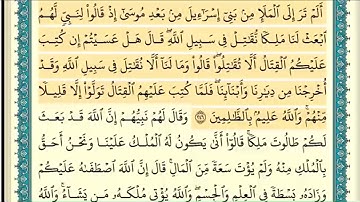 أَلَمْ تَرَ إِلَى ٱلْمَلَإِ مِنۢ بَنِىٓ إِسْرَٰٓءِيلَ مِنۢ بَعْدِ مُوسَىٰٓ إِذْ قَالُوا۟ لِنَبِىٍّ لَّهُمُ
ٱبْعَثْ لَنَا مَلِكًا نُّقَٰتِلْ فِى سَبِيلِ ٱللَّهِ ۖ قَالَ هَلْ عَسَيْتُمْ إِن كُتِبَ
عَلَيْكُمُ ٱلْقِتَالُ أَلَّا تُقَٰتِلُوا۟ ۖ قَالُوا۟ وَمَا لَنَآ أَلَّا نُقَٰتِلَ فِى سَبِيلِ ٱللَّهِ وَقَدْ
أُخْرِجْنَا مِن دِيَٰرِنَا وَأَبْنَآئِنَا ۖ فَلَمَّا كُتِبَ عَلَيْهِمُ ٱلْقِتَالُ تَوَلَّوْا۟ إِلَّا قَلِيلًا
مِّنْهُمْ ۗ وَٱللَّهُ عَلِيمٌۢ بِٱلظَّٰلِمِينَ ٢٤٦ وَقَالَ لَهُمْ نَبِيُّهُمْ إِنَّ ٱللَّهَ قَدْ بَعَثَ
لَكُمْ طَالُوتَ مَلِكًا ۚ قَالُوٓا۟ أَنَّىٰ يَكُونُ لَهُ ٱلْمُلْكُ عَلَيْنَا وَنَحْنُ أَحَقُّ
بِٱلْمُلْكِ مِنْهُ وَلَمْ يُؤْتَ سَعَةً مِّنَ ٱلْمَالِ ۚ قَالَ إِنَّ ٱللَّهَ ٱصْطَفَىٰهُ عَلَيْكُمْ
وَزَادَهُۥ بَسْطَةً فِى ٱلْعِلْمِ وَٱلْجِسْمِ ۖ وَٱللَّهُ يُؤْتِى مُلْكَهُۥ مَن يَشَآءُ ۚ وَٱللَّهُ